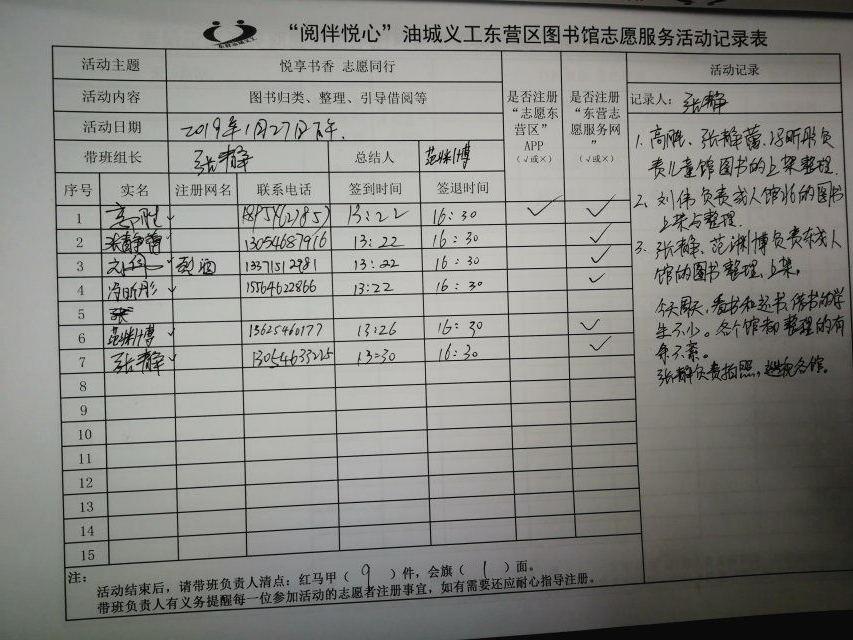 “阅伴悦心”油城义工东营区图书馆志愿服务活动记录表
活动主题 悦享书香 志愿同行
活动内容 图书归类、整理、引导借阅等
活动日期 2019年1月27日下午.
带班组长 张静 总结人
是否注册“志愿东营区”APP（√或×）
是否注册“东营志愿服务网”（√或×）
序号 实名 注册网名 联系电话 签到时间 签退时间
1 高胜 ✓ 13:22 16:30 ✓ ✓
2 张静蕾 13054687916 13:22 16:30 ✓
3 刘伟 ✓ 13371512981 13:22 16:30 ✓
4 冯昕彤 ✓ 15564622866 13:22 16:30 ✓
5
6 ✓ 13625460177 13:26 16:30 ✓
7 张静 ✓ 13054633225 13:30 16:30 ✓
8
9
10
11
12
13
14
15
活动记录
记录人：张静
1. 高胜、张静蕾、冯昕彤负
责儿童馆图书的上架整理.
2、刘伟负责成人馆的图书
上架与整理.
3、张静、范博负责成人
馆的图书整理、上架。
今天周天，看书和还书、借书的学
生不少。各个馆都整理的有
条不紊。
张静负责拍照，巡视各馆。
注：
活动结束后，请带班负责人清点：红马甲（ 9 ）件，会旗（ 1 ）面。
带班负责人有义务提醒每一位参加活动的志愿者注册事宜，如有需要还应耐心指导注册。